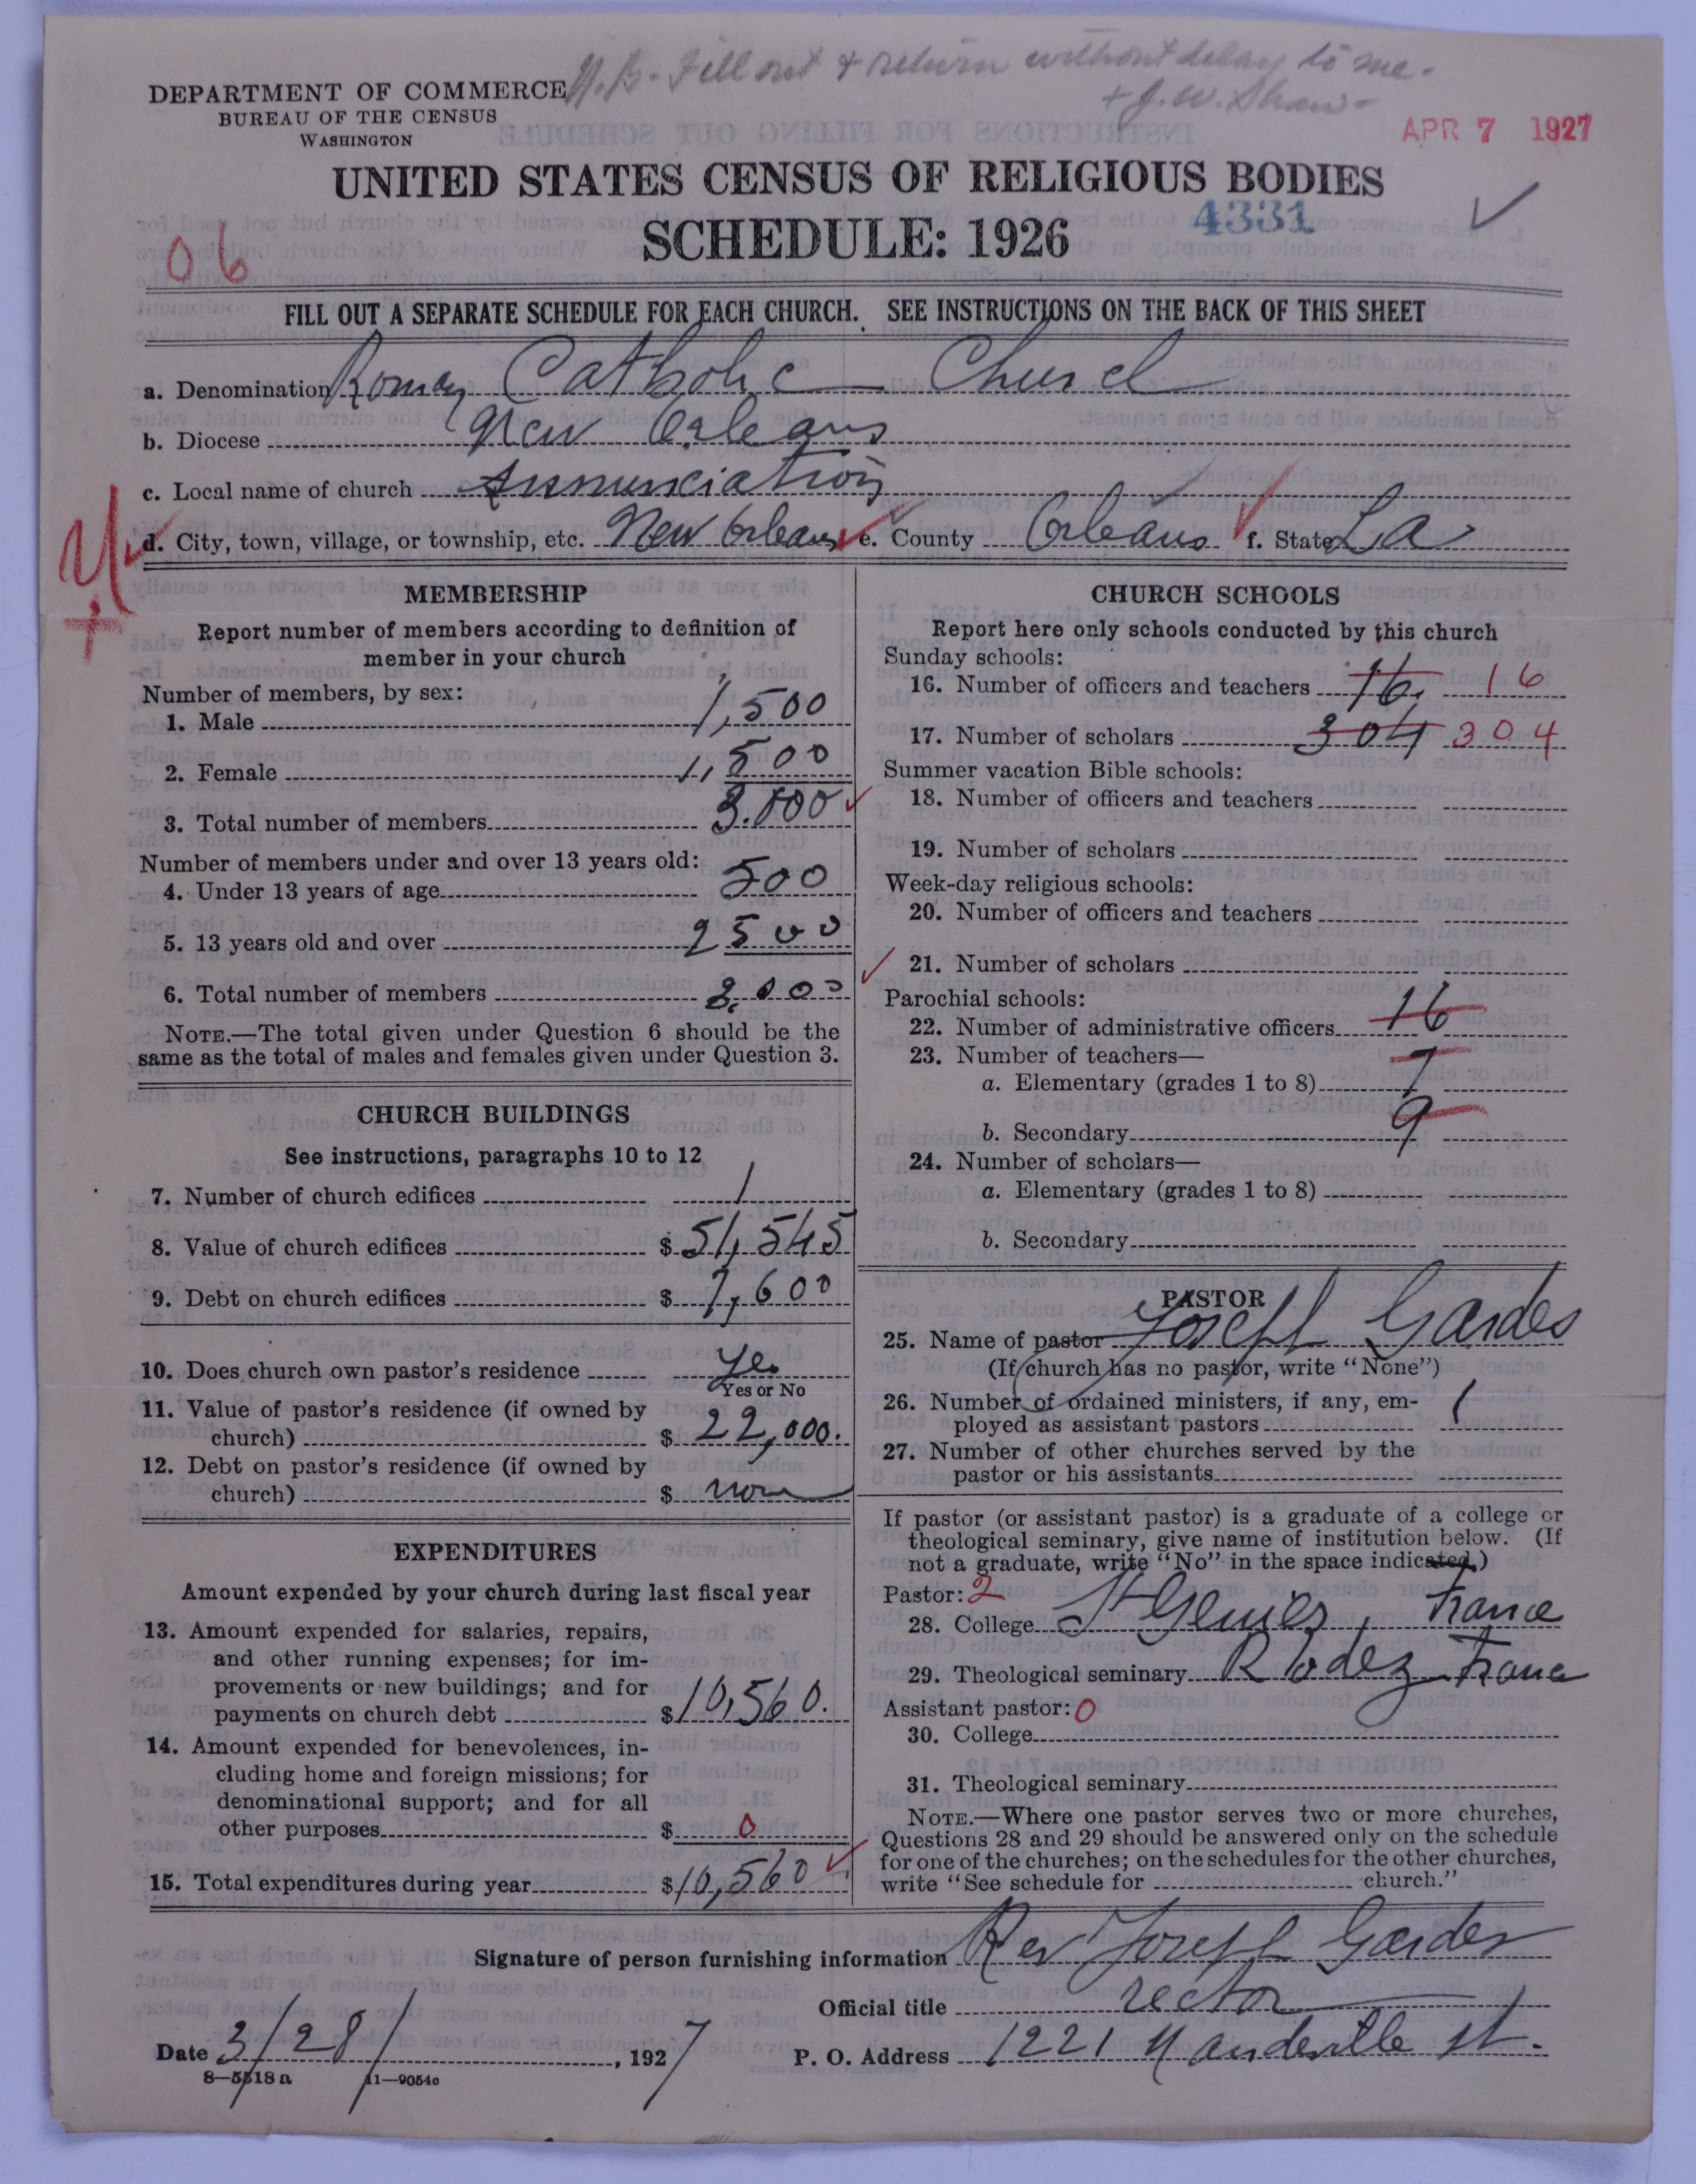 N.B. Fill out & return without delay to me.
+ J. W. Shaw
DEPARTMENT OF COMMERCE
BUREAU OF THE CENSUS
WASHINGTON
APR 7 1927
UNITED STATES CENSUS OF RELIGIOUS BODIES
4331
SCHEDULE: 1926
06
FILL OUT A SEPARATE SCHEDULE FOR EACH CHURCH. SEE INSTRUCTIONS ON THE BACK OF THIS SHEET
a. Denomination Roman Catholic Church
b. Diocese New Orleans
c. Local name of church Annunciation
d. City, town, village, or township, etc. New Orleans e. County Orleans f. State La
MEMBERSHIP
Report number of members according to definition of
member in your church
Number of members, by sex:
1. Male 1,500
2. Female 1,500
3. Total number of members 3.000
Number of members under and over 13 years old:
4. Under 13 years of age 500
5. 13 years old and over 2500
6. Total number of members 3.000
NOTE.—The total given under Question 6 should be the
same as the total of males and females given under Question 3.
CHURCH BUILDINGS
See instructions, paragraphs 10 to 12
7. Number of church edifices 1
8. Value of church edifices $ 51,545
9. Debt on church edifices $ 7,600
10. Does church own pastor's residence Yes
Yes or No
11. Value of pastor's residence (if owned by
church) $ 22,000.
12. Debt on pastor's residence (if owned by
church) $ none
EXPENDITURES
Amount expended by your church during last fiscal year
13. Amount expended for salaries, repairs,
and other running expenses; for im-
provements or new buildings; and for
payments on church debt $ 10,560.
14. Amount expended for benevolences, in-
cluding home and foreign missions; for
denominational support; and for all
other purposes $ 0
15. Total expenditures during year $ 10,560
CHURCH SCHOOLS
Report here only schools conducted by this church
Sunday schools:
16. Number of officers and teachers 16. 16
17. Number of scholars 304 304
Summer vacation Bible schools:
18. Number of officers and teachers
19. Number of scholars
Week-day religious schools:
20. Number of officers and teachers
21. Number of scholars
Parochial schools:
22. Number of administrative officers 16
23. Number of teachers—
a. Elementary (grades 1 to 8) 7
b. Secondary 9
24. Number of scholars—
a. Elementary (grades 1 to 8)
b. Secondary
PASTOR
25. Name of pastor Joseph Gardes
(If church has no pastor, write "None")
26. Number of ordained ministers, if any, em-
ployed as assistant pastors 1
27. Number of other churches served by the
pastor or his assistants
If pastor (or assistant pastor) is a graduate of a college or
theological seminary, give name of institution below. (If
not a graduate, write "No" in the space indicated.)
Pastor: 2
28. College St Geniez, France
29. Theological seminary Rodez France
Assistant pastor: 0
30. College
31. Theological seminary
NOTE.—Where one pastor serves two or more churches,
Questions 28 and 29 should be answered only on the schedule
for one of the churches; on the schedules for the other churches,
write "See schedule for church."
Signature of person furnishing information Rev Joseph Gardes
Official title rector
Date 3/28/, 1927 P. O. Address 1221 Mandeville St.
8—5518a 11—9054c